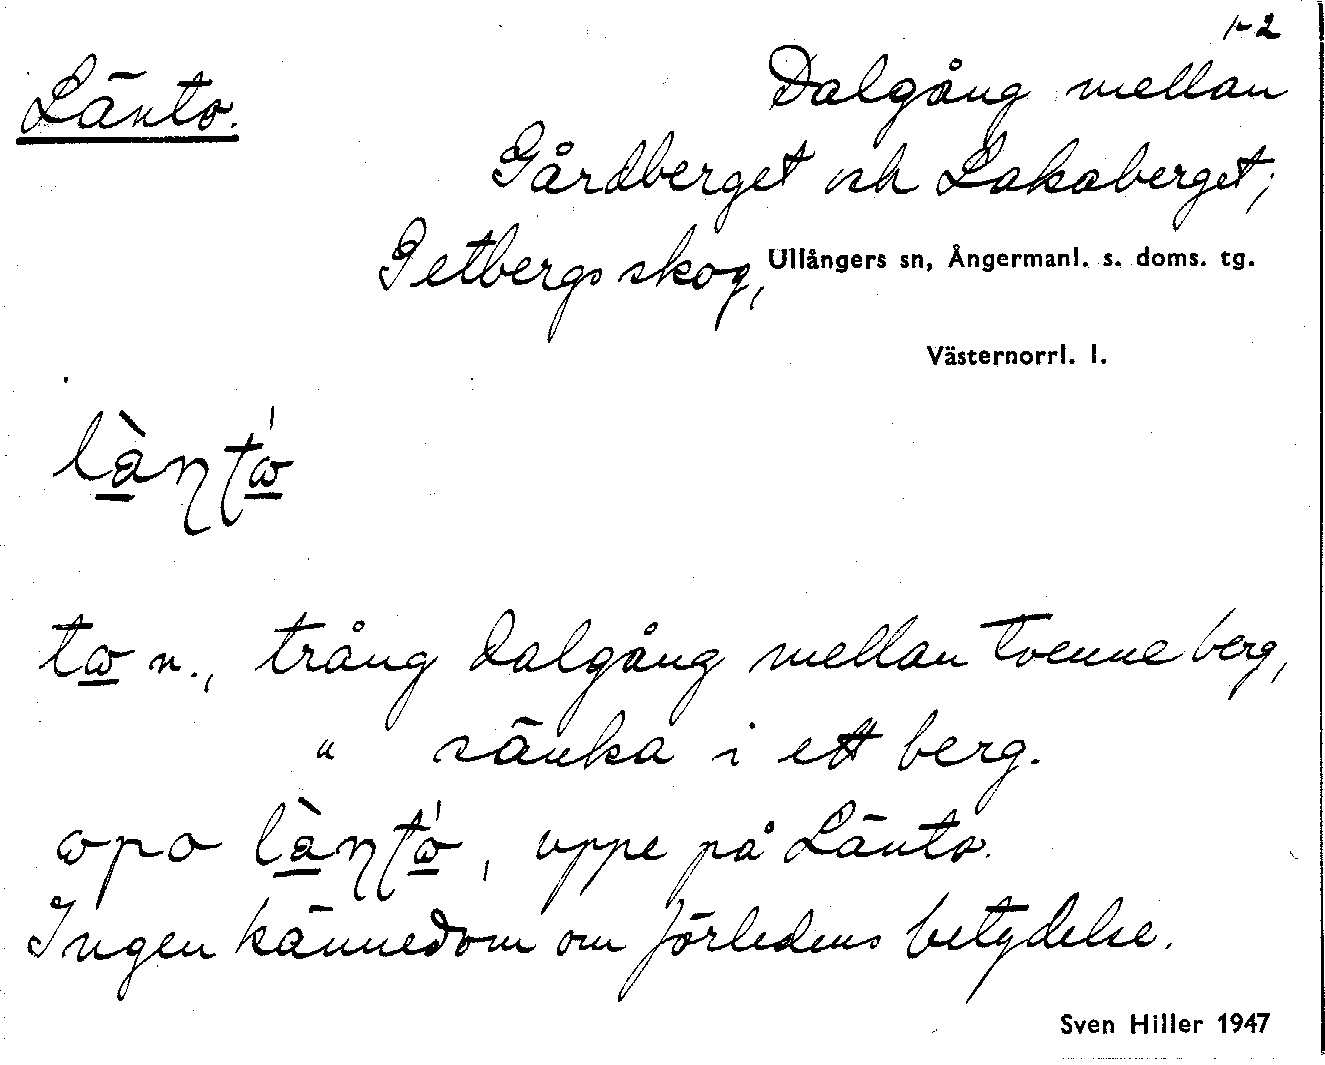 1-2
Länto.
Dalgång mellan
Gårdberget och Lakaberget;
Getbergs skog, Ullångers sn, Ångermanl. s. doms. tg.
Västernorrl. l.
to n., trång dalgång mellan tvenne berg,
" sänka i ett berg.
, uppe på Länto.
Ingen kännedom om förledens betydelse.
Sven Hiller 1947